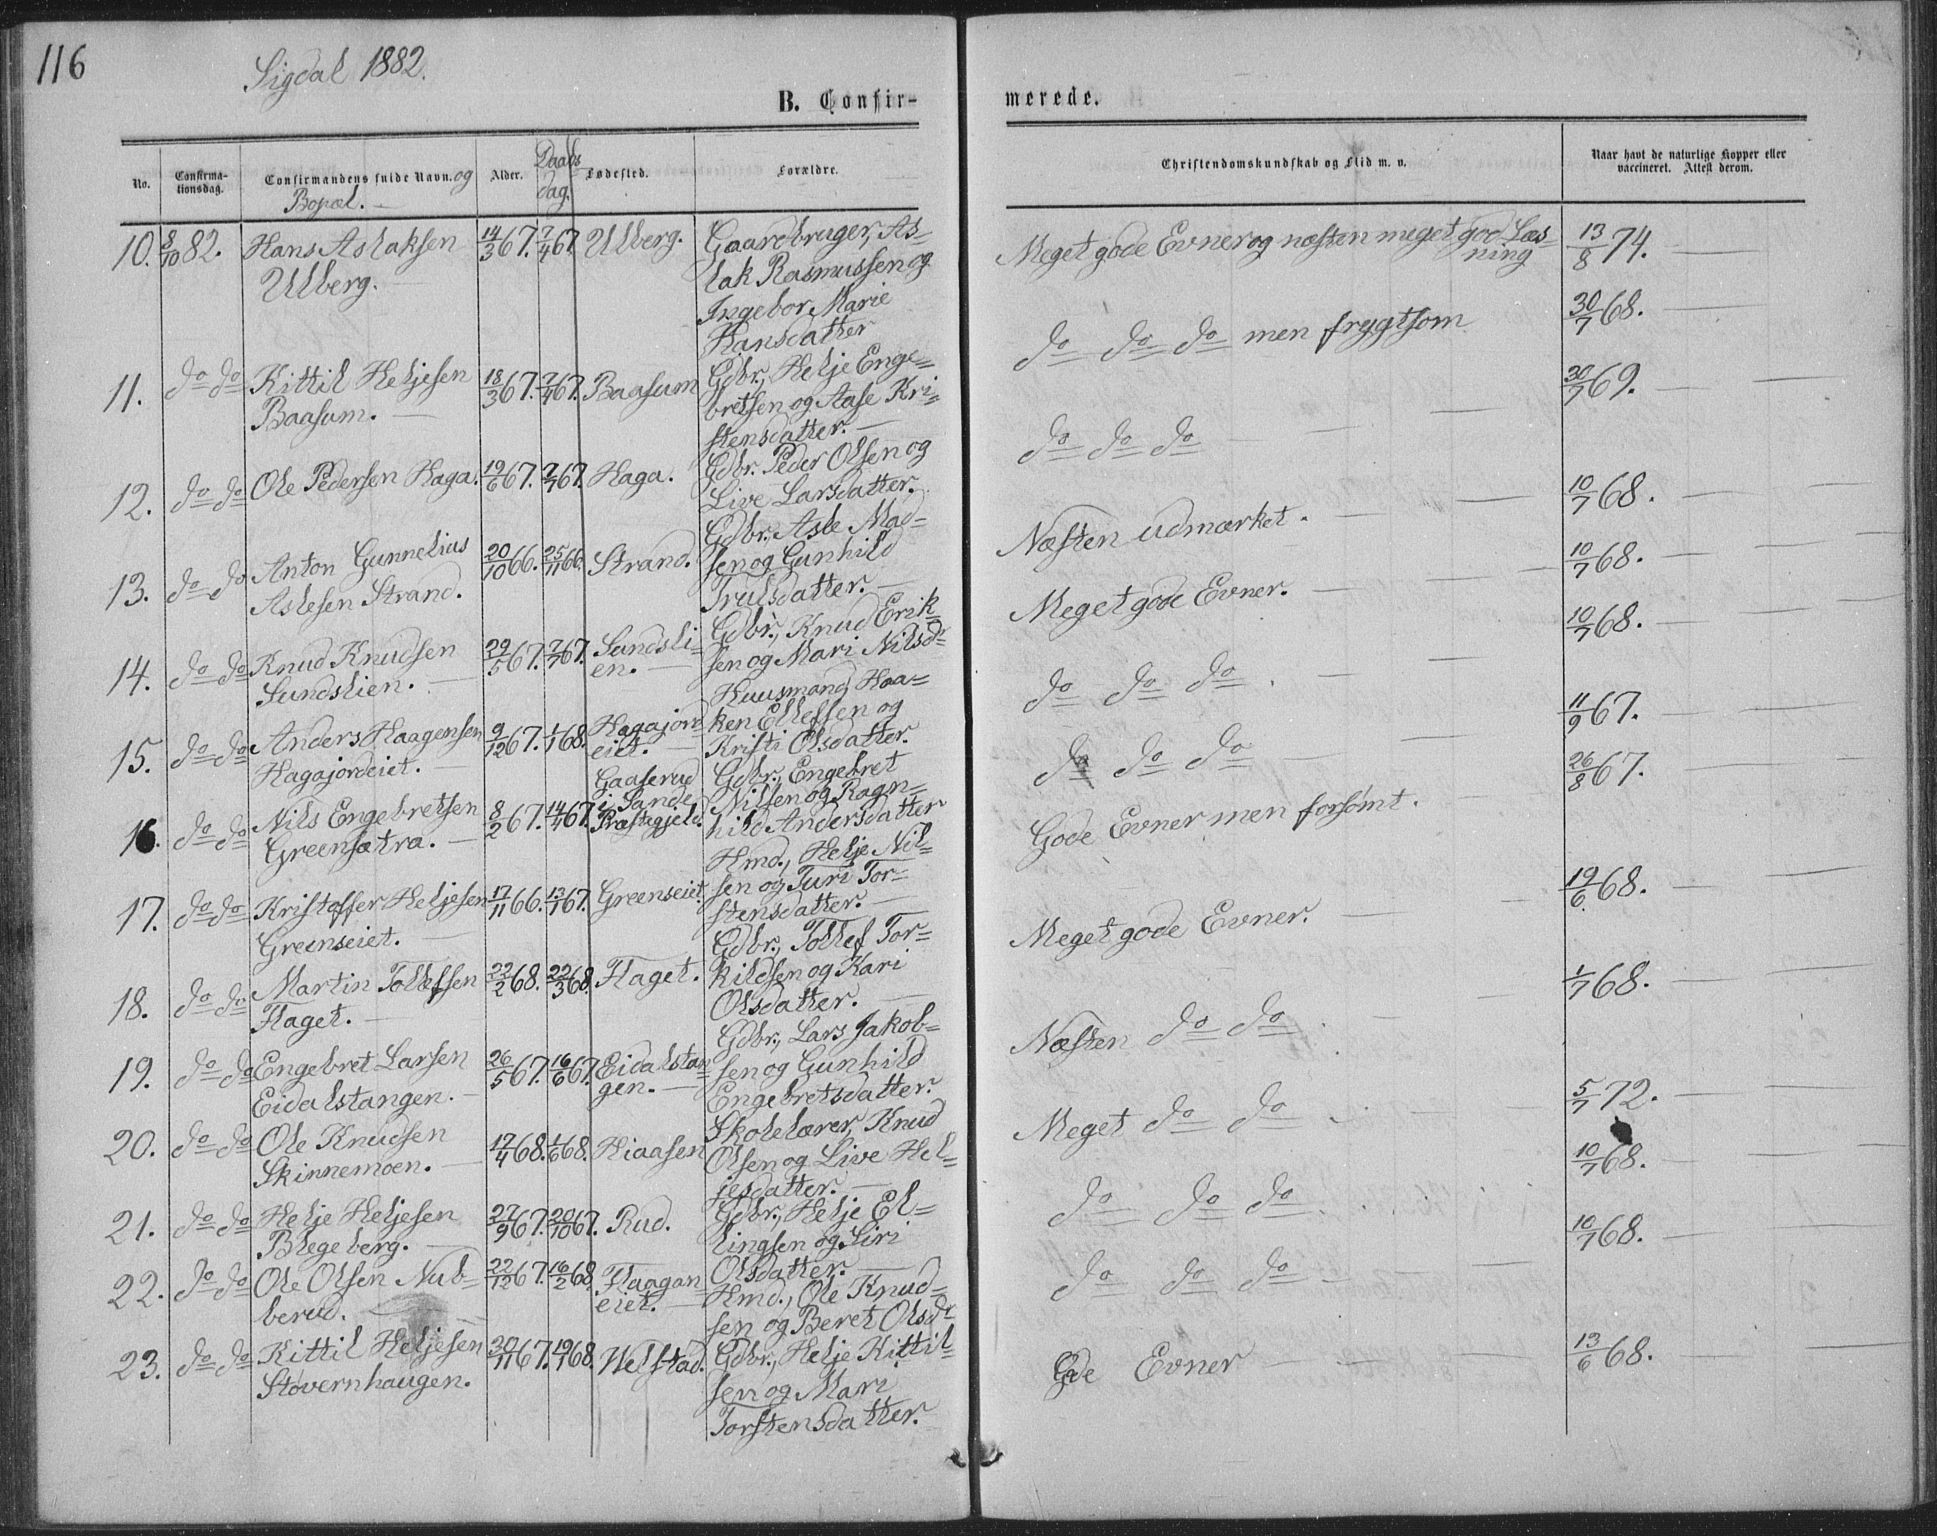 116
Sigdal 1882.
B. Confir-
merede.
No.
Confirma-
tionsdag.
Confirmandens fulde Navn. og
Bopæl. —
Alder.
Daabs
dag.
Fødested.
Forældre.
Christendomskundskab og Flid m. v.
Naar havt de naturlige Kopper eller
vaccineret. Attest derom.
10. 8/10 82. Hans Aslaksen
Ulberg. —
14/3 67. 7/4 67. Ulberg.
Gaardbruger, As-
lak Rasmussen og
Ingebor Marie
Hansdatter
Meget gode Evner og næsten meget god Læs-
ning
13/8 74. —
11. do do Kittil Heljesen
Baasum. —
18/3 67. 7/4 67. Baasum
Gdbr., Helje Enge-
bretsen og Aase Kri-
stensdatter. —
do do do men frygtsom
30/7 68. —
12. do do Ole Pedersen Haga.
19/6 67. 7/7 67. Haga.
Gdbr. Peder Olsen og
Live Larsdatter.
do do do — —
30/7 69. — —
13. do do Anton Gunnelius
Aslesen Strand.
20/10 66. 25/11 66. Strand.
Gdbr., Asle Mad-
sen og Gunhild
Trulsdatter. —
Næsten udmærket. — —
10/7 68. — —
14. do do Knud Knudsen
Sundslien. —
29/5 67. 7/7 67. Sundsli-
en. —
Gdbr., Knud Erik-
sen og Mari Nilsdr
Meget gode Evner. — —
10/7 68. — —
15. do do Anders Haagensen
Hagajordeiet. —
9/12 67. 1/1 68. Hagajord
eiet. —
Huusmand, Haa-
ken Ellefsen og
Kristi Olsdatter.
do do do . — —
10/7 68. — —
16. do do Nils Engebretsen
Greensætra. —
8/2 67. 14/4 67. Gaaserud
i Sande
Præstegjeld.
Gdbr., Engebret
Nilsen og Ragn-
hild Andersdatter
do do do — —
11/9 67. — —
17. do do Kristoffer Heljesen
Greenseiet. —
17/11 66. 13/1 67. Greenseiet.
Hmd., Helje Nil-
sen og Turi Tor-
stensdatter. —
Gode Evner men forsömt. —
26/8 67. — —
18. do do Martin Tollefsen
Flaget. —
22/2 68. 22/3 68. Flaget.
Gdbr., Tollef Tor-
kildsen og Kari
Olsdatter. —
Meget gode Evner. — —
19/6 68. — —
19. do do Engebret Larsen
Eidalstangen. —
26/5 67. 16/6 67. Eidalstan
gen. —
Gdbr., Lars Jakob-
sen og Gunhild
Engebretsdatter.
Næsten do do . — —
1/7 68. — —
20. do do Ole Knudsen
Skinnemoen. —
17/4 68. 1/6 68. Hiaasen
Skolelærer, Knud
Olsen og Live Hel-
jesdatter. —
Meget do do . — —
5/7 72. — —
21. do do Helje Heljesen
Blegeberg. —
27/9 67. 20/10 67. Rud.
Gdbr., Helje El-
lingsen og Siri
Olsdatter. —
do do do . .
10/7 68. —
22. do do Ole Olsen Nub-
berud.
22/12 67. 16/2 68 Flaagan
eiet. —
Hmd., Ole Knud-
sen og Beret Olsdr
do do do — —
10/7 68. — —
23. do do Kittil Heljesen
Stövernhaugen.
30/11 67. 19/1 68. Welstad.
Gdbr., Helje Kittil-
sen og Mari
Torstensdatter.
Gode Evner — —
13/6 68. — —